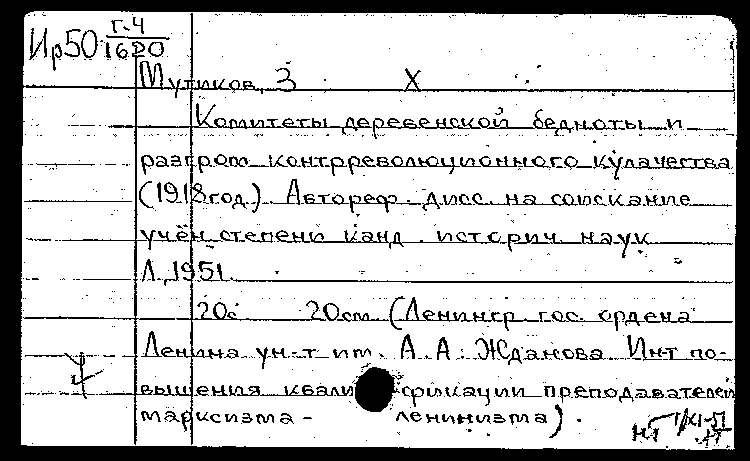 Ир50 г.4
1620
Мутиков, З X
Комитеты деревенской бедноты и
разгром контрреволюционного кулачества
(1918год.). Автореф. дисс. на соискание
учён.степени канд. историч. наук
Л.,1951.
20с 20см (Ленингр. гос. ордена
Ленина ун-т им. А.А. Жданова. Инт по-
вышения квалификации преподавателей
марксизма - ленинизма).